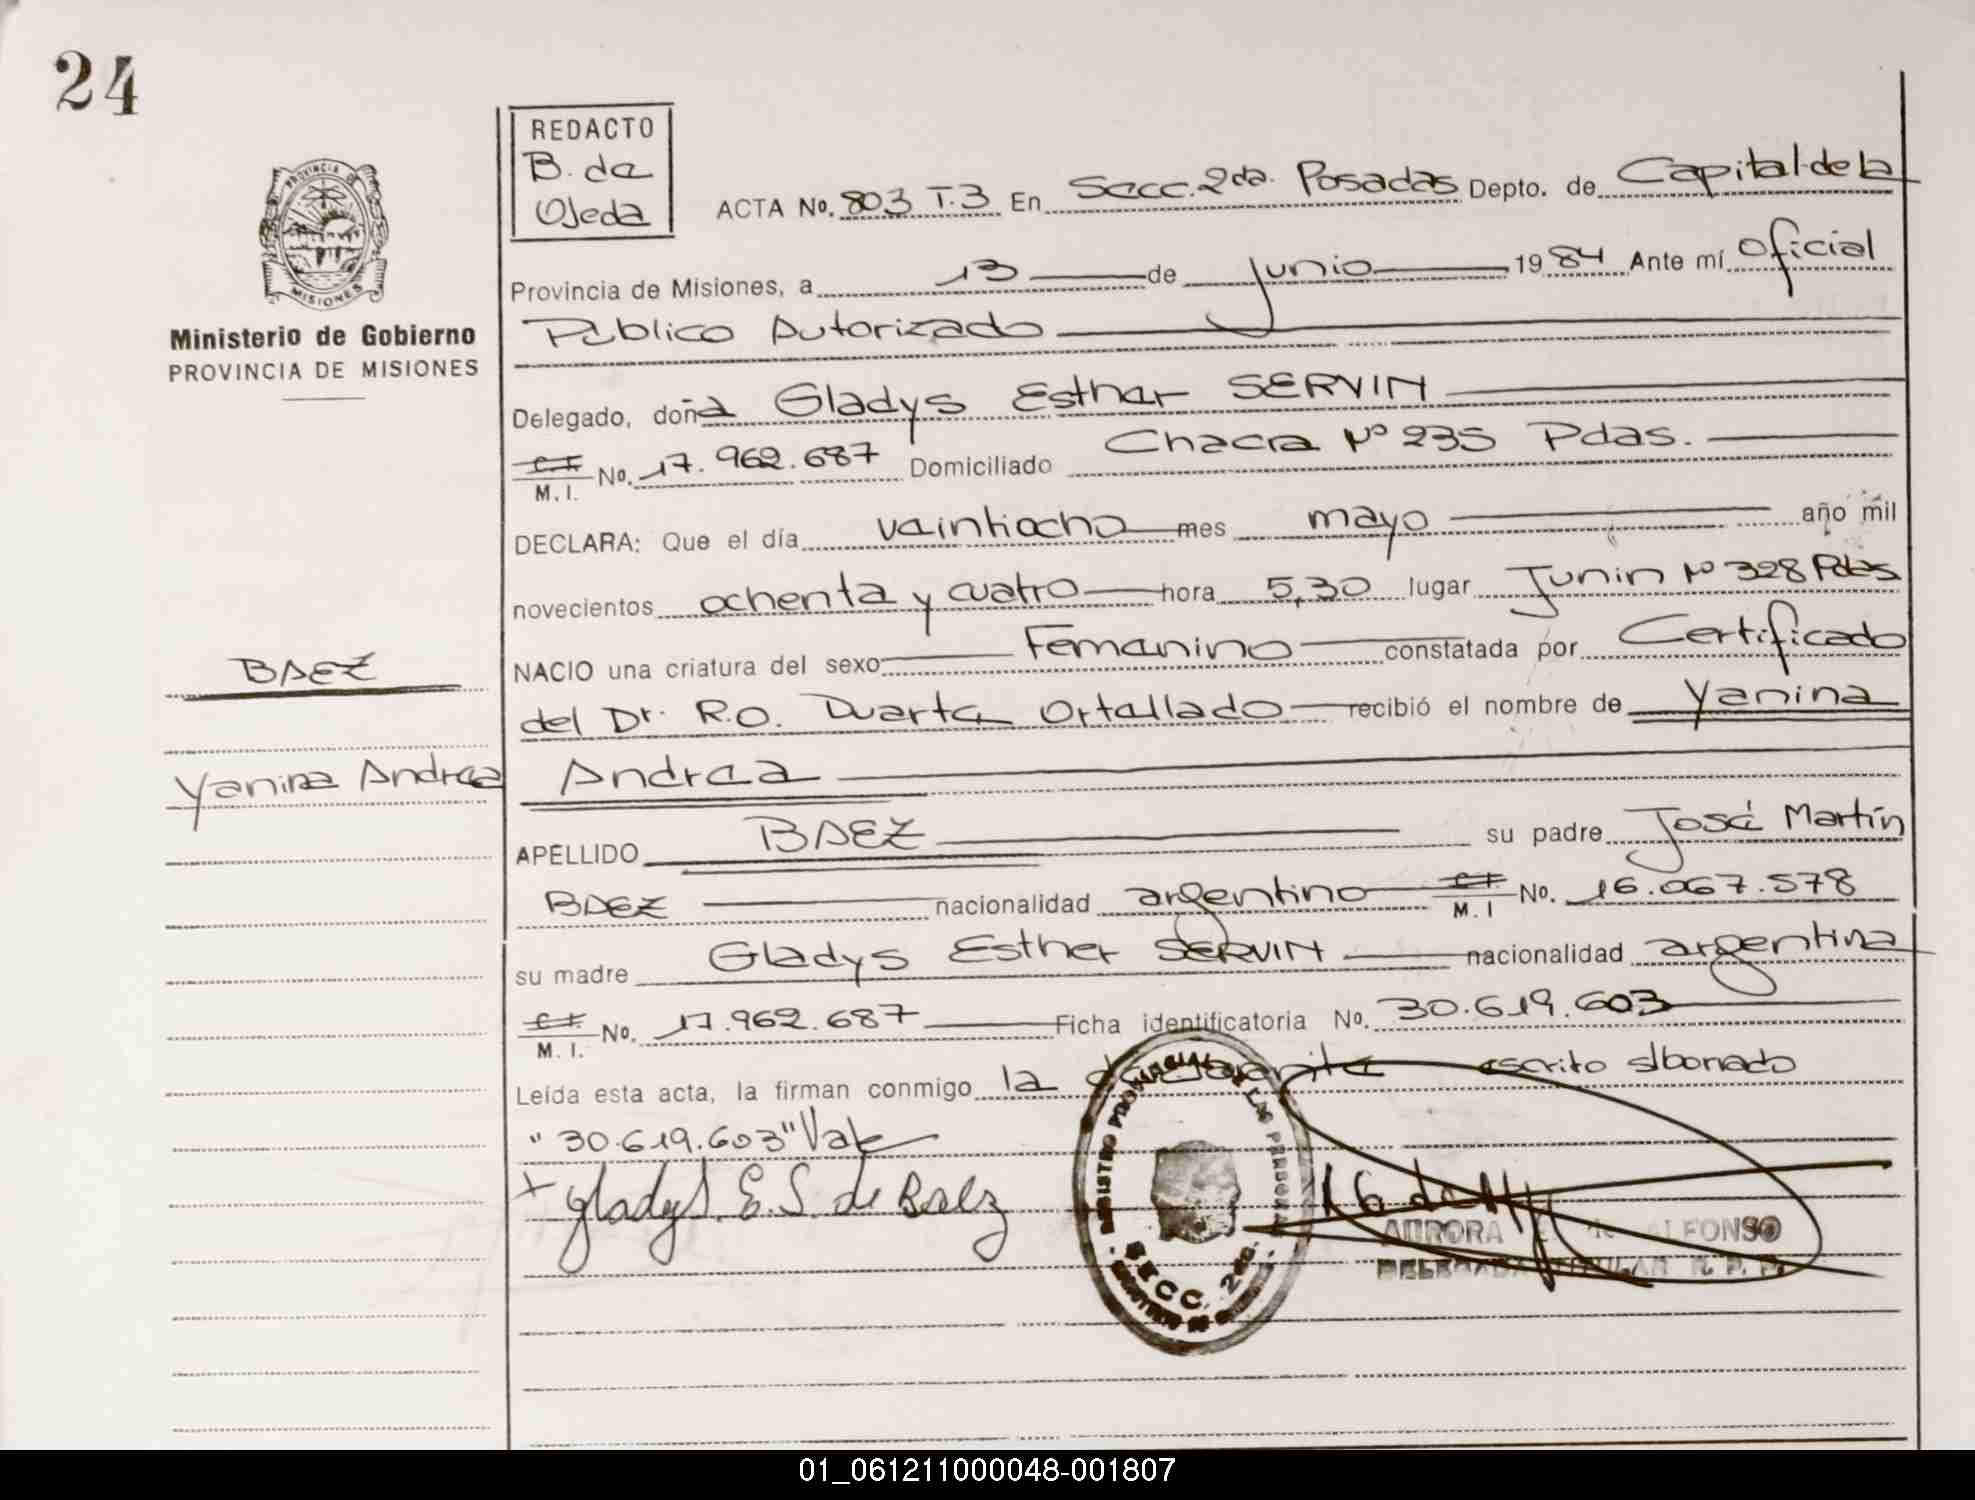 24
REDACTO
B. de
Ojeda
ACTA No. 803 T.3 En Secc. 2da. Posadas Depto. de Capital de la
Provincia de Misiones, a 13 de Junio 1984 Ante mí Oficial
Público Autorizado
PROVINCIA DE
MISIONES
Ministerio de Gobierno
PROVINCIA DE MISIONES
Delegado, doña Gladys Esther SERVIN
C.I. M.I. No. 17.962.687 Domiciliado Chacra Nº 235 Pdas.
DECLARA: Que el día veintiocho mes mayo año mil
novecientos ochenta y cuatro hora 5,30 lugar Junin Nº 328 Pdas
NACIO una criatura del sexo Femenino constatada por Certificado
del Dr. R.O. Duarte Ortellado recibió el nombre de Yanina
Andrea
BAEZ
Yanina Andrea
APELLIDO BAEZ su padre José Martín
BAEZ nacionalidad argentino C.I. M.I No. 16.067.578
su madre Gladys Esther SERVIN nacionalidad argentina
C.I. M.I. No. 17.962.687 Ficha identificatoria No. 30.619.603
Leída esta acta, la firman conmigo la declarante escrito s/borrado
"30.619.603" Vale
x Gladys. E. S. de Baez
REGISTRO PROVINCIAL DE LAS PERSONAS
SECC. 2da.
AURORA de ALFONSO
DELEGADA TITULAR R. P. P.
01_061211000048-001807